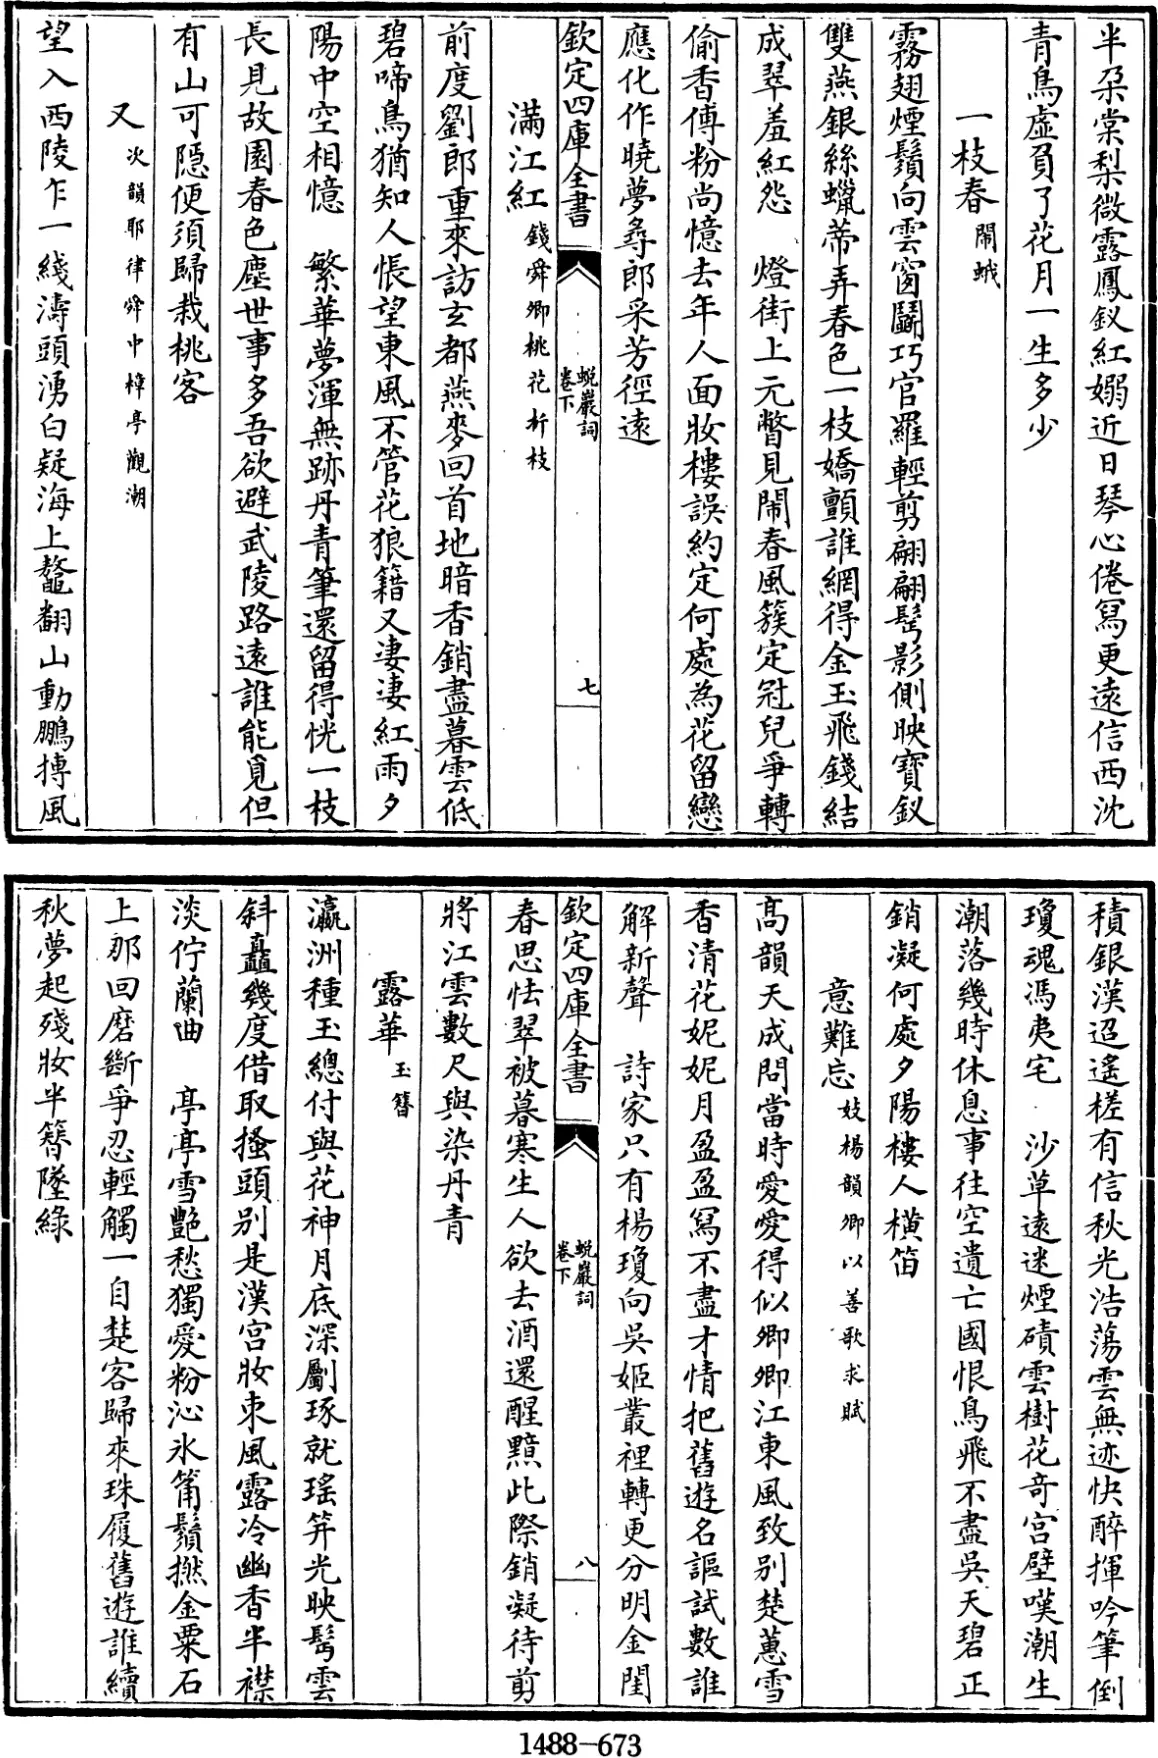 半朶棠梨微露鳳釵紅嫋近日琴心倦寫更遠信西沈
青鳥虛負了花月一生多少
一枝春 閙蛾
霧翅煙鬚向雲窗鬭巧宮羅輕剪翩翩鬢影側映寶釵
雙燕銀絲蠟蒂弄春色一枝嬌顫誰網得金玉飛錢結
成翠羞紅怨 燈街上元瞥見閙春風簇定冠兒爭轉
偷香傅粉尚憶去年人面妝樓誤約定何處為花留戀
應化作曉夢尋郎采芳徑遠
欽定四庫全書 蛻巖詞 卷下 七
滿江紅 錢舜卿桃花折枝
前度劉郎重來訪玄都燕麥回首地暗香銷盡暮雲低
碧啼鳥猶知人悵望東風不管花狼籍又凄凄紅雨夕
陽中空相憶 繁華夢渾無跡丹青筆還留得恍一枝
長見故園春色塵世事多吾欲避武陵路遠誰能覓但
有山可隱便須歸栽桃客
又 次韻耶律舜中樟亭觀潮
望入西陵乍一綫濤頭湧白疑海上鼇翻山動鵬摶風
積銀漢迢遙槎有信秋光浩蕩雲無迹快醉揮吟筆倒
瓊魂馮夷宅 沙草遠迷煙磧雲樹花奇宮壁嘆潮生
潮落幾時休息事往空遺亡國恨鳥飛不盡吳天碧正
銷凝何處夕陽樓人橫笛
意難忘 妓楊韻卿以善歌求賦
高韻天成問當時愛愛得似卿卿江東風致别楚蕙雪
香清花妮妮月盈盈寫不盡才情把舊遊名謳試數誰
解新聲 詩家只有楊瓊向吳姬叢裡轉更分明金閨
欽定四庫全書 蛻巖詞 卷下 八
春思怯翠被暮寒生人欲去酒還醒黯此際銷凝待剪
將江雲數尺與染丹青
露華 玉簪
瀛洲種玉總付與花神月底深劚琢就瑶笄光映髩雲
斜矗幾度借取搔頭别是漢宮妝束風露冷幽香半襟
淡佇蘭曲 亭亭雪艷愁獨愛粉沁氷筩鬚撚金粟石
上那回磨斷爭忍輕觸一自楚客歸來珠履舊遊誰續
秋夢起殘妝半簪墜綠
1488—673